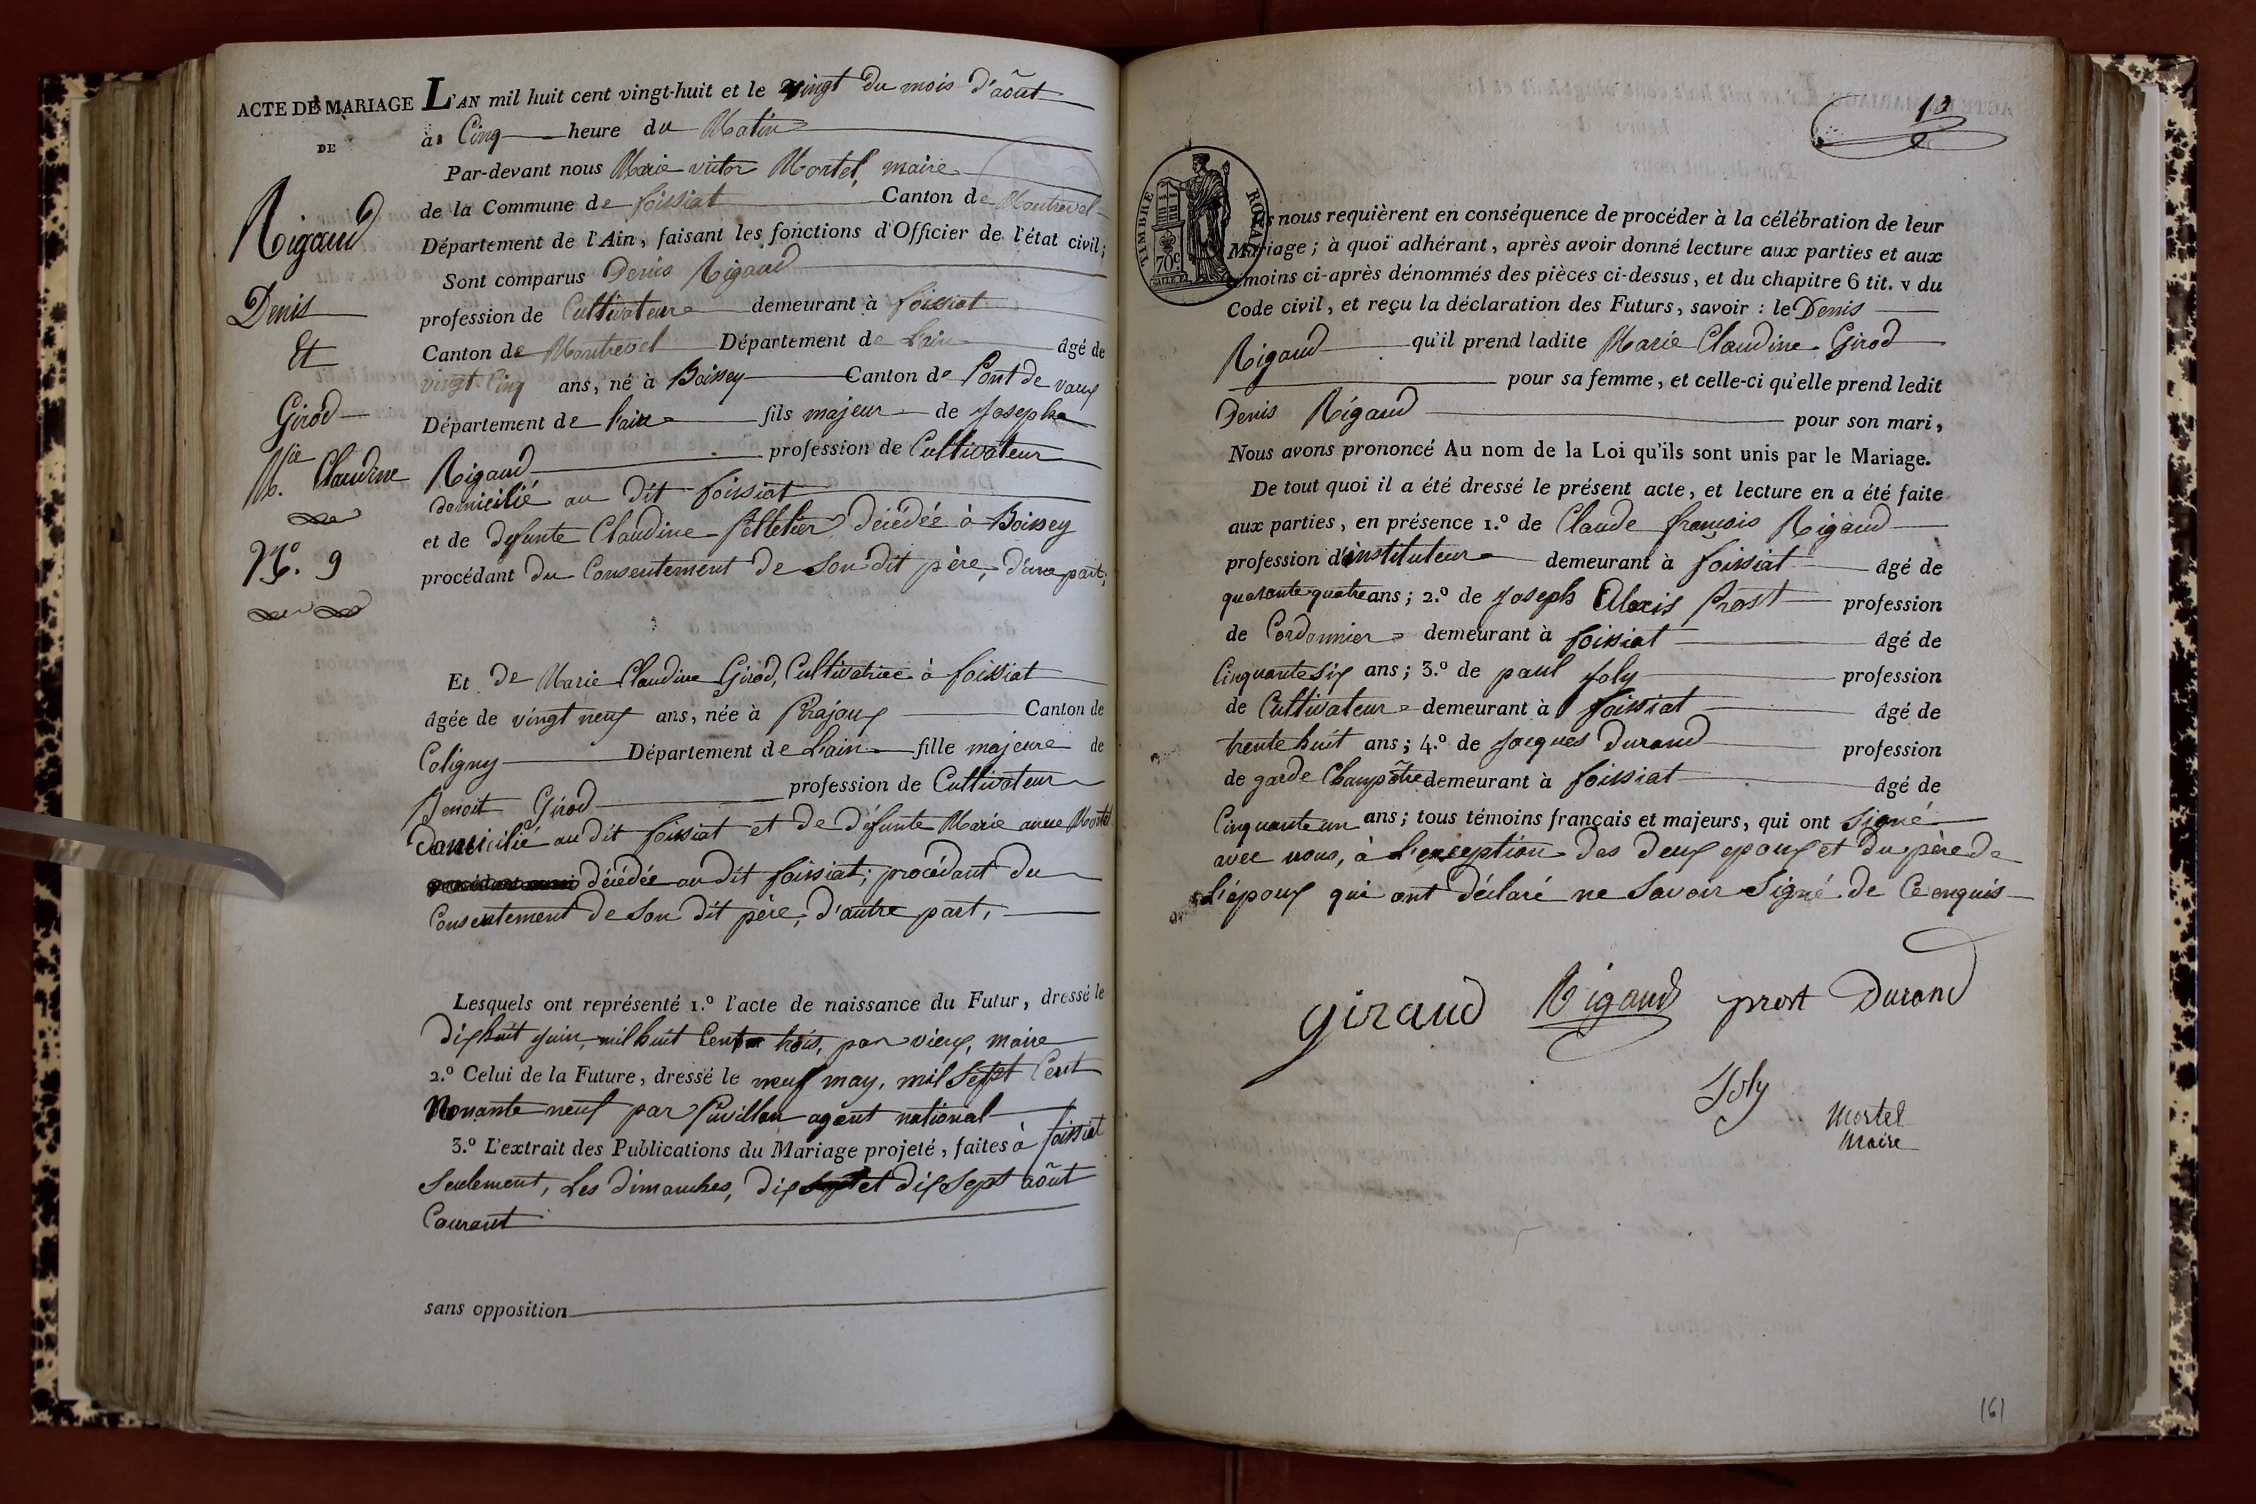 ACTE DE MARIAGE
DE
Rigaud
Denis
Et
Girod
Mie. Claudine
N.o 9
L'AN mil huit cent vingt-huit et le vingt du mois d'août
à Cinq heure du Matin
Par-devant nous Marie victor Mortel, maire
de la Commune de foissiat Canton de Montrevel
Département de l'Ain, faisant les fonctions d'Officier de l'état civil;
Sont comparus Denis Rigaud
profession de Cultivateur demeurant à foissiat
Canton de Montrevel Département de Lain âgé de
vingt Cinq ans, né à Boissey Canton de Pont de vaux
Département de lain fils majeur de Joseph
Rigaud profession de Cultivateur
domicilié au dit foissiat
et de defunte Claudine Pelletier décédée à Boissey
procédant du Consentement de Son dit père, d'une part;
Et de Marie Claudine Girod, Cultivatrice à foissiat
âgée de vingt neuf ans, née à Pirajoux Canton de
Coligny Département de Lain fille majeure de
Benoit Girod profession de Cultivateur
Domicilié au dit foissiat et de défunte Marie anne Mortel
décédée au dit foissiat; procédant du
Consentement de Son dit père, d'autre part,
Lesquels ont représenté 1.o l'acte de naissance du Futur, dressé le
dix huit juin, mil huit Cent trois, par vieux, maire
2.o Celui de la Future, dressé le neuf may, mil Sept Cent
Nonante neuf par Puvillan agent national
3.o L'extrait des Publications du Mariage projeté, faites à foissiat
Seulement, Les dimanches, dix et dix Sept août
Courant
sans opposition
10
TIMBRE ROYAL
70c
nous requièrent en conséquence de procéder à la célébration de leur
Mariage; à quoi adhérant, après avoir donné lecture aux parties et aux
témoins ci-après dénommés des pièces ci-dessus, et du chapitre 6 tit. v du
Code civil, et reçu la déclaration des Futurs, savoir : le Denis
Rigaud qu'il prend ladite Marie Claudine Girod
pour sa femme, et celle-ci qu'elle prend ledit
Denis Rigaud pour son mari,
Nous avons prononcé Au nom de la Loi qu'ils sont unis par le Mariage.
De tout quoi il a été dressé le présent acte, et lecture en a été faite
aux parties, en présence 1.o de Claude françois Rigaud
profession d'instituteur demeurant à foissiat âgé de
quarante quatre ans; 2.o de Joseph Alexis Prost profession
de Cordonnier demeurant à foissiat âgé de
Cinquante Six ans; 3.o de paul Joly profession
de Cultivateur demeurant à foissiat âgé de
trente huit ans; 4.o de Jacques Durand profession
de garde Champêtre demeurant à foissiat âgé de
Cinquante un ans; tous témoins français et majeurs, qui ont Signé
avec nous, à L'exception des deux epoux et du père de
L'époux qui ont déclaré ne Savoir Signé de Ce enquis
Giraud Rigaud prost Durand
Joly
Mortel
Maire
161